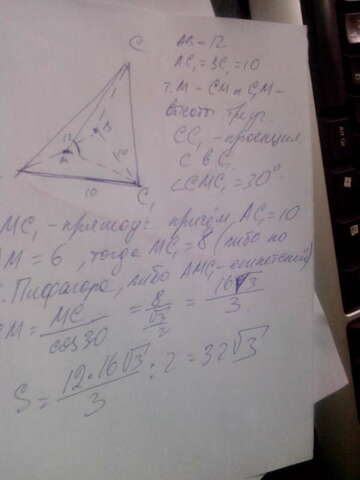 C
12
M
B
10
10
C₁
AB = 12
AC₁ = BC₁ = 10
т. M - CM и C₁M -
высоты треуг.
CC₁ - проекция
C в C₁
∠CMC₁ = 30°
MC₁ - прямоуг. причём, AC₁ = 10
AM = 6, тогда MC₁ = 8 (либо по
т. Пифагора, либо AMC - египетский)
CM = MC₁/cos30 = 8/(√3/2) = 16√3/3
S = 12·16√3/3 : 2 = 32√3